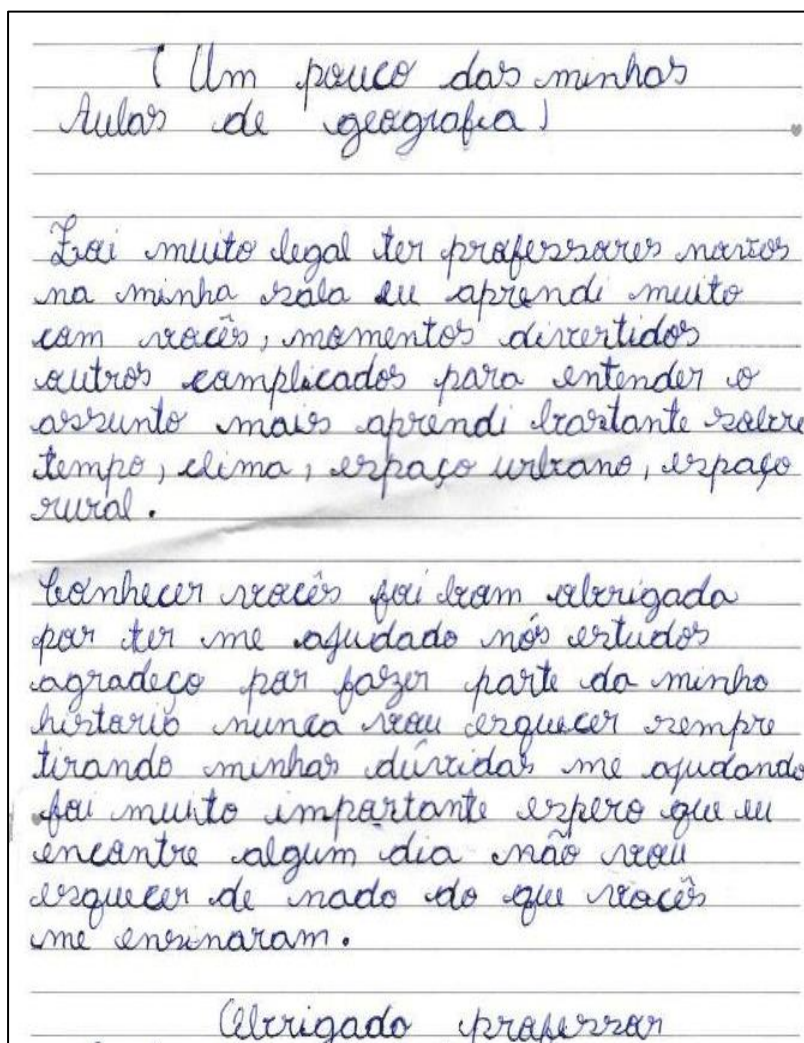 (Um pouco das minhas
Aulas de geografia)
Foi muito legal ter professores novos
na minha sala eu aprendi muito
com vocês, momentos divertidos
outros complicados para entender o
assunto mais aprendi bastante sobre
tempo, clima, espaço urbano, espaço
rural.
Conhecer vocês foi bom obrigada
por ter me ajudado nós estudos
agradeço por fazer parte da minha
historia nunca vou esquecer sempre
tirando minhas dúvidas me ajudando
foi muito importante espero que eu
encontre algum dia não vou
esquecer de nada do que vocês
me ensinaram.
Obrigado professor